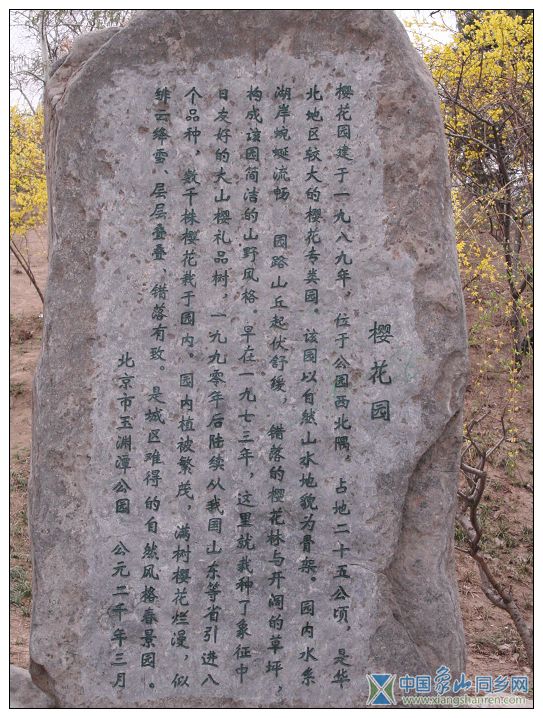 樱花园
樱花园建于一九八九年，位于公园西北隅。占地二十五公顷，是华
北地区较大的樱花专类园。该园以自然山水地貌为骨架。园内水系
湖岸蜿蜒流畅 园路山丘起伏舒缓，错落的樱花林与开阔的草坪，
构成该园简洁的山野风格。早在一九七三年，这里就栽种了象征中
日友好的大山樱礼品树，一九九零年后陆续从我国山东等省引进八
个品种，数千株樱花栽于园内。园内植被繁茂，满树樱花烂漫，似
绯云绛雪、层层叠叠、错落有致。是城区难得的自然风格春景园。
北京市玉渊潭公园 公元二千年三月
中国象山同乡网
www.xiangshanren.com